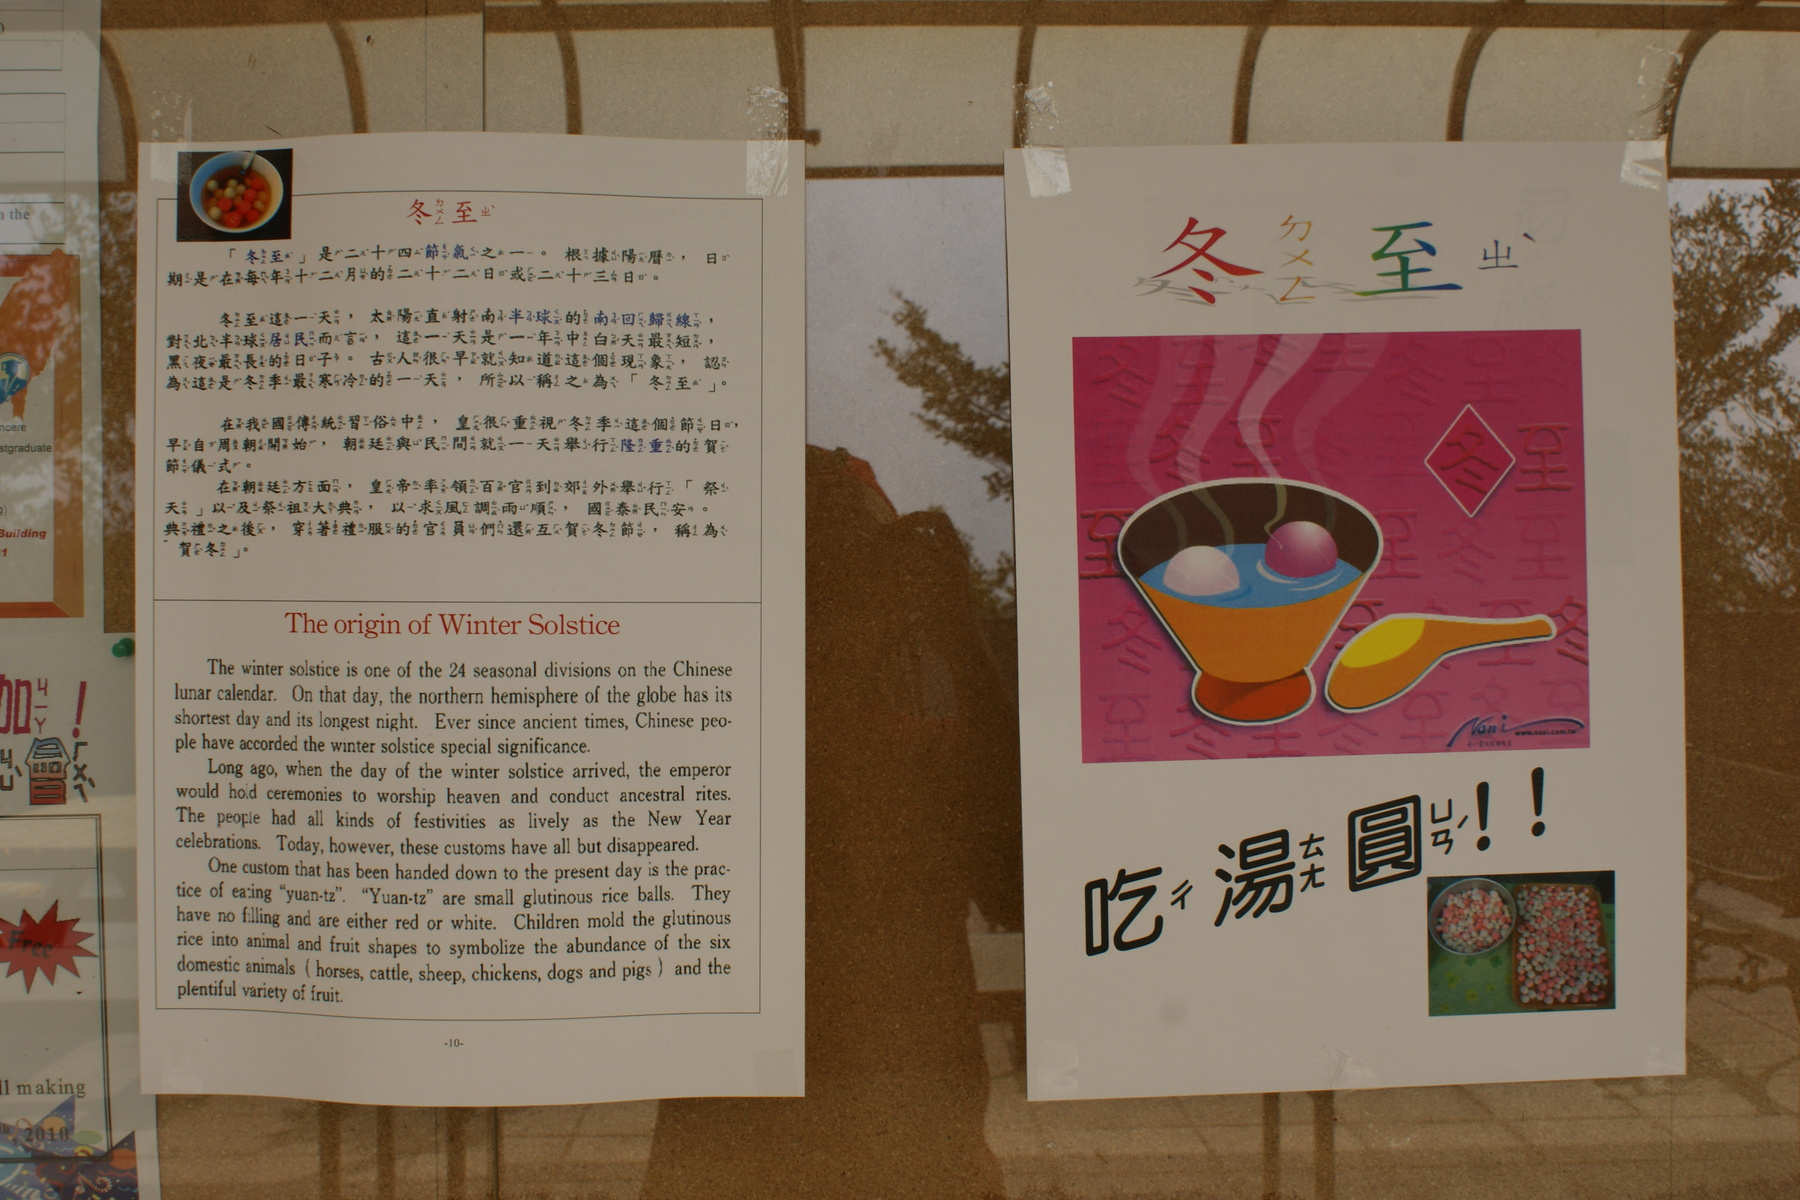 冬ㄉㄨㄥ至ㄓˋ
「冬至」是二十四節氣之一。根據陽曆,日
期是在每年十二月的二十二日或二十三日。
冬至這一天,太陽直射南半球的南回歸線,
對北半球居民而言,這一天是一年中白天最短,
黑夜最長的日子。古人很早就知道這個現象,認
為這是冬季最寒冷的一天,所以稱之為「冬至」。
在我國傳統習俗中,皇很重視冬季這個節日,
早自周朝開始,朝廷與民間就一天舉行隆重的賀
節儀式。
在朝廷方面,皇帝率領百官到郊外舉行「祭
天」以及祭祖大典,以求風調雨順,國泰民安。
典禮之後,穿著禮服的官員們還互賀冬節,稱為
「賀冬」。
The origin of Winter Solstice
The winter solstice is one of the 24 seasonal divisions on the Chinese
lunar calendar. On that day, the northern hemisphere of the globe has its
shortest day and its longest night. Ever since ancient times, Chinese peo-
ple have accorded the winter solstice special significance.
Long ago, when the day of the winter solstice arrived, the emperor
would hold ceremonies to worship heaven and conduct ancestral rites.
The people had all kinds of festivities as lively as the New Year
celebrations. Today, however, these customs have all but disappeared.
One custom that has been handed down to the present day is the prac-
tice of eating “yuan-tz”. “Yuan-tz” are small glutinous rice balls. They
have no filling and are either red or white. Children mold the glutinous
rice into animal and fruit shapes to symbolize the abundance of the six
domestic animals ( horses, cattle, sheep, chickens, dogs and pigs ) and the
plentiful variety of fruit.
-10-
冬ㄉㄨㄥ至ㄓˋ
冬
至
Nani www.nani.com.tw
吃ㄔ湯ㄊㄤ圓ㄩㄢˊ!!
n the
ncere
stgraduate
Building
1
加ㄐㄧㄚ!
Free
ll making
, 2010